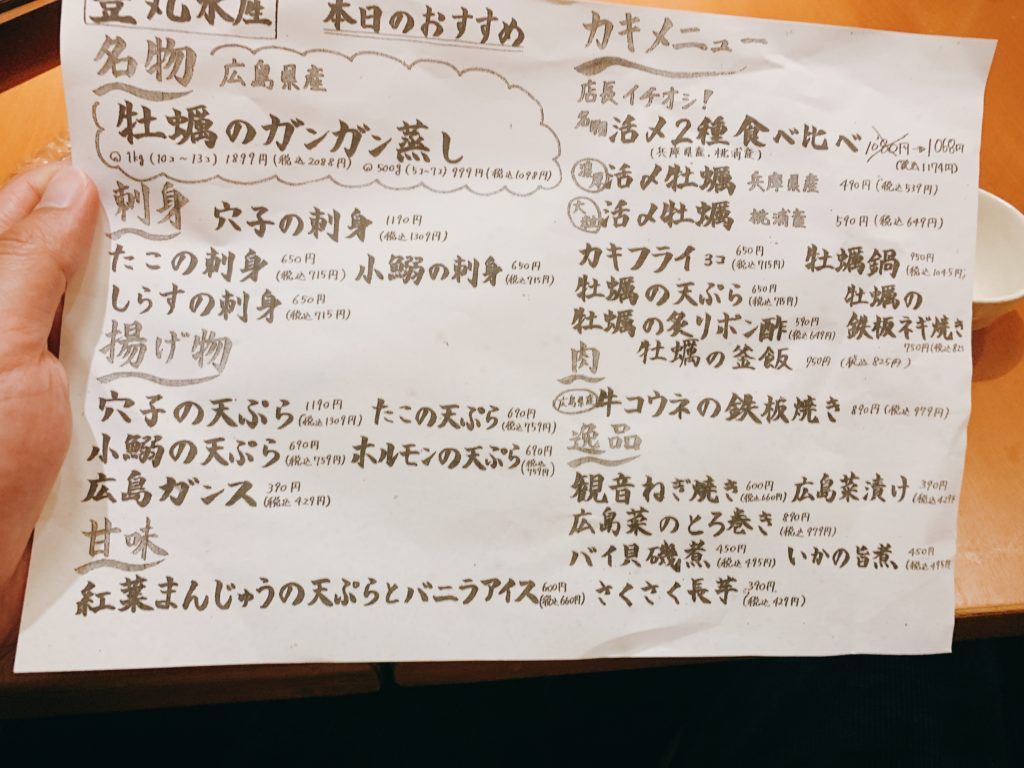 豊丸水産
本日のおすすめ
名物 広島県産
牡蠣のガンガン蒸し
1kg (10コ〜13コ) 1899円 (税込2088円) 500g (5コ〜7コ) 999円 (税込1098円)
刺身
穴子の刺身 1190円 (税込1309円)
たこの刺身 650円 (税込715円) 小鰯の刺身 650円 (税込715円)
しらすの刺身 650円 (税込715円)
揚げ物
穴子の天ぷら 1190円 (税込1309円) たこの天ぷら 690円 (税込759円)
小鰯の天ぷら 690円 (税込759円) ホルモンの天ぷら 690円 (税込759円)
広島ガンス 390円 (税込429円)
甘味
紅葉まんじゅうの天ぷらとバニラアイス 600円 (税込660円)
カキメニュー
店長イチオシ!
活〆2種食べ比べ 1080円→1068円
(兵庫県産、桃浦産) (税込1174円)
濃厚 活〆牡蠣 兵庫県産 490円 (税込539円)
活〆牡蠣 桃浦産 590円 (税込649円)
カキフライ 3コ 650円 (税込715円) 牡蠣鍋 950円 (税込1045円)
牡蠣の天ぷら 650円 (税込715円) 牡蠣の
牡蠣の炙りポン酢 590円 (税込649円) 鉄板ネギ焼き
750円 (税込825
牡蠣の釜飯 950円 (税込825円)
肉
広島県産 牛コウネの鉄板焼き 890円 (税込979円)
逸品
観音ねぎ焼き 600円 (税込660円) 広島菜漬け 390円 (税込429
広島菜のとろ巻き 890円 (税込979円)
バイ貝磯煮 450円 (税込495円) いかの旨煮 450円 (税込495
さくさく長芋 390円 (税込429円)